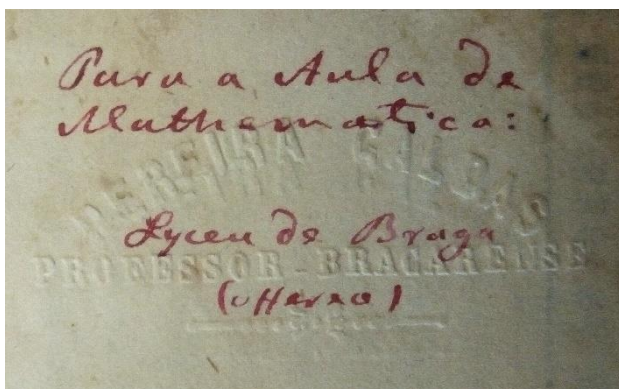 Para a Aula de
Mathematica:
PEREIRA CALDAS
Lyceu de Braga
PROFESSOR-BRACARENSE
(offereço)